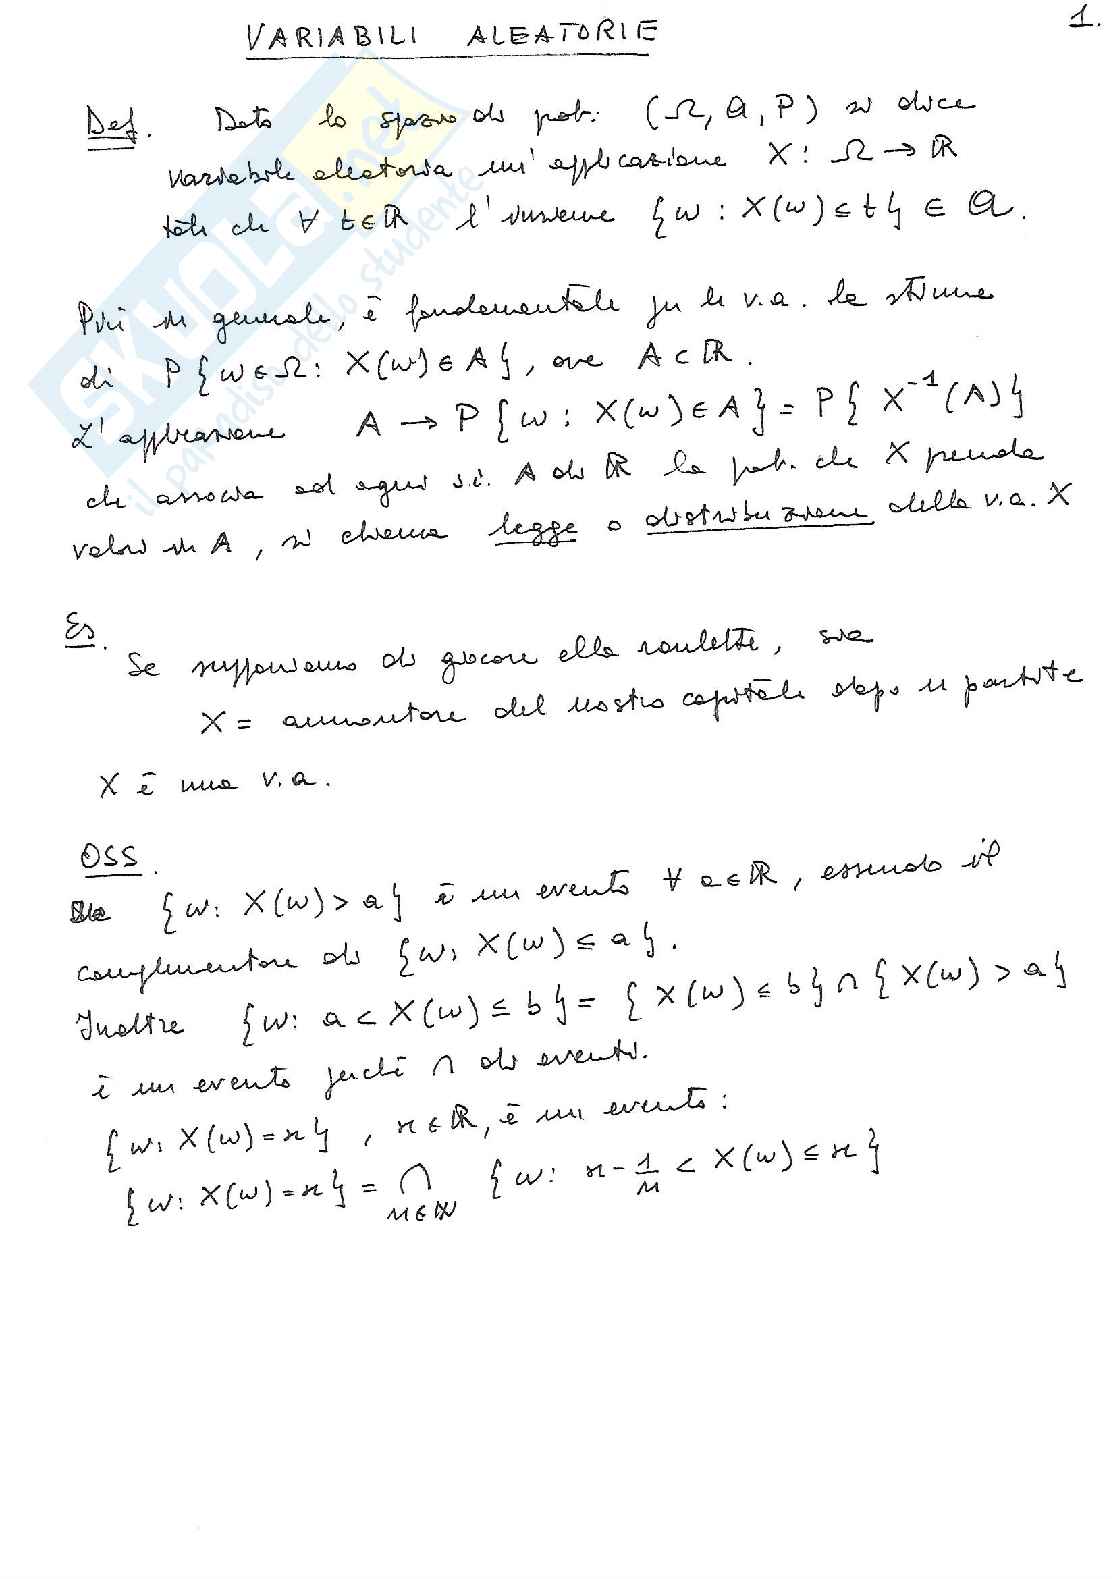 1.
VARIABILI ALEATORIE
Def. Dato lo spazio di prob. (Ω, a, P) si dice
variabile aleatoria un'applicazione X: Ω → ℝ
tale che ∀ t∈ℝ l'insieme {ω : X(ω) ≤ t} ∈ a.
Più in generale, è fondamentale per le v.a. la stima
di P{ω∈Ω: X(ω)∈A}, ove A⊂ℝ.
L'applicazione A → P{ω: X(ω)∈A} = P{X⁻¹(A)}
che associa ad ogni s.i. A di ℝ la prob. che X prenda
valori in A, si chiama legge o distribuzione della v.a. X
Es.
Se supponiamo di giocare alla roulette, sia
X = ammontare del nostro capitale dopo n partite
X è una v.a.
OSS.
{ω: X(ω) > a} è un evento ∀ a∈ℝ, essendo il
complementare di {ω: X(ω) ≤ a}.
Inoltre {ω: a < X(ω) ≤ b} = {X(ω) ≤ b} ∩ {X(ω) > a}
è un evento perchè ∩ di eventi.
{ω: X(ω) = x}, x∈ℝ, è un evento:
{ω: X(ω) = x} = ∩ n∈ℕ {ω: x - 1/n < X(ω) ≤ x}
SKUOLA.net
il paradiso dello studente